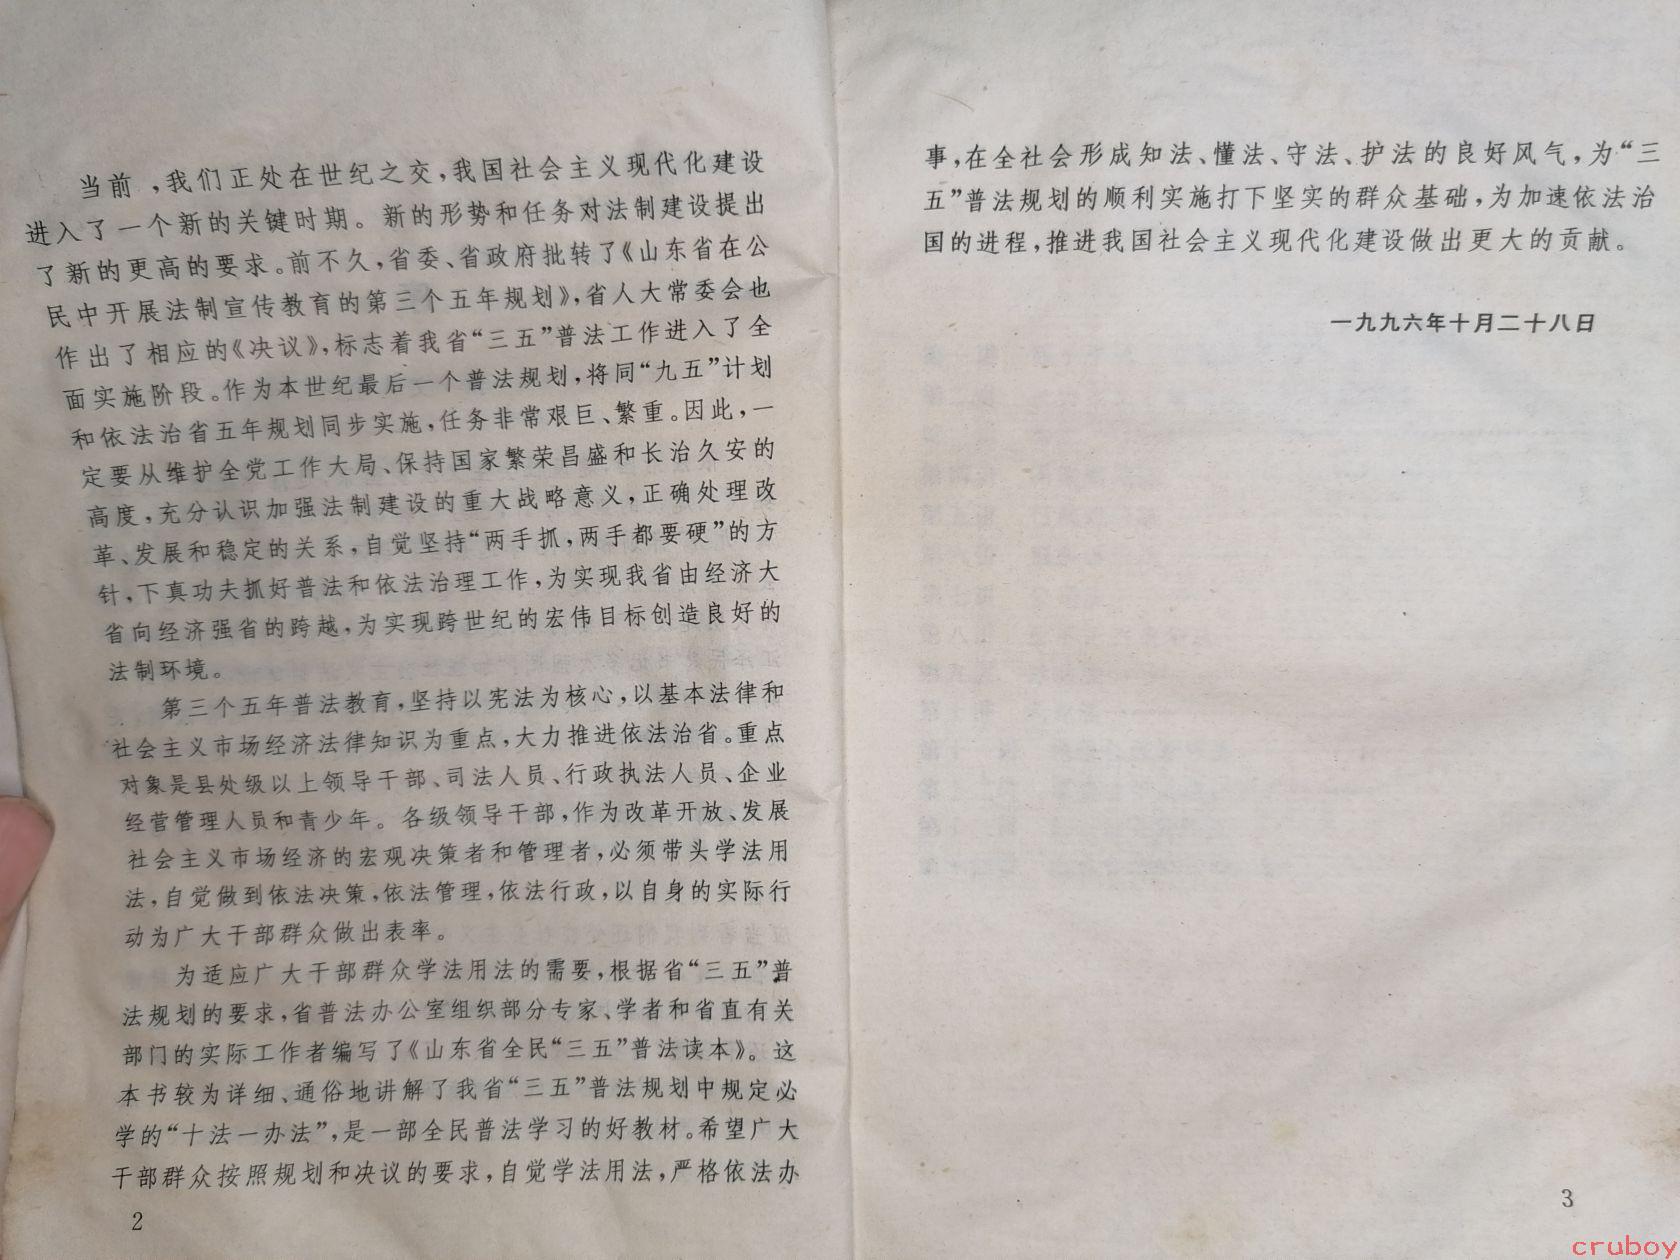 当前,我们正处在世纪之交,我国社会主义现代化建设
进入了一个新的关键时期。新的形势和任务对法制建设提出
了新的更高的要求。前不久,省委、省政府批转了《山东省在公
民中开展法制宣传教育的第三个五年规划》,省人大常委会也
作出了相应的《决议》,标志着我省“三五”普法工作进入了全
面实施阶段。作为本世纪最后一个普法规划,将同“九五”计划
和依法治省五年规划同步实施,任务非常艰巨、繁重。因此,一
定要从维护全党工作大局、保持国家繁荣昌盛和长治久安的
高度,充分认识加强法制建设的重大战略意义,正确处理改
革、发展和稳定的关系,自觉坚持“两手抓,两手都要硬”的方
针,下真功夫抓好普法和依法治理工作,为实现我省由经济大
省向经济强省的跨越,为实现跨世纪的宏伟目标创造良好的
法制环境。
第三个五年普法教育,坚持以宪法为核心,以基本法律和
社会主义市场经济法律知识为重点,大力推进依法治省。重点
对象是县处级以上领导干部、司法人员、行政执法人员、企业
经营管理人员和青少年。各级领导干部,作为改革开放、发展
社会主义市场经济的宏观决策者和管理者,必须带头学法用
法,自觉做到依法决策,依法管理,依法行政,以自身的实际行
动为广大干部群众做出表率。
为适应广大干部群众学法用法的需要,根据省“三五”普
法规划的要求,省普法办公室组织部分专家、学者和省直有关
部门的实际工作者编写了《山东省全民“三五”普法读本》。这
本书较为详细、通俗地讲解了我省“三五”普法规划中规定必
学的“十法一办法”,是一部全民普法学习的好教材。希望广大
干部群众按照规划和决议的要求,自觉学法用法,严格依法办
2
事,在全社会形成知法、懂法、守法、护法的良好风气,为“三
五”普法规划的顺利实施打下坚实的群众基础,为加速依法治
国的进程,推进我国社会主义现代化建设做出更大的贡献。
一九九六年十月二十八日
3
cruboy